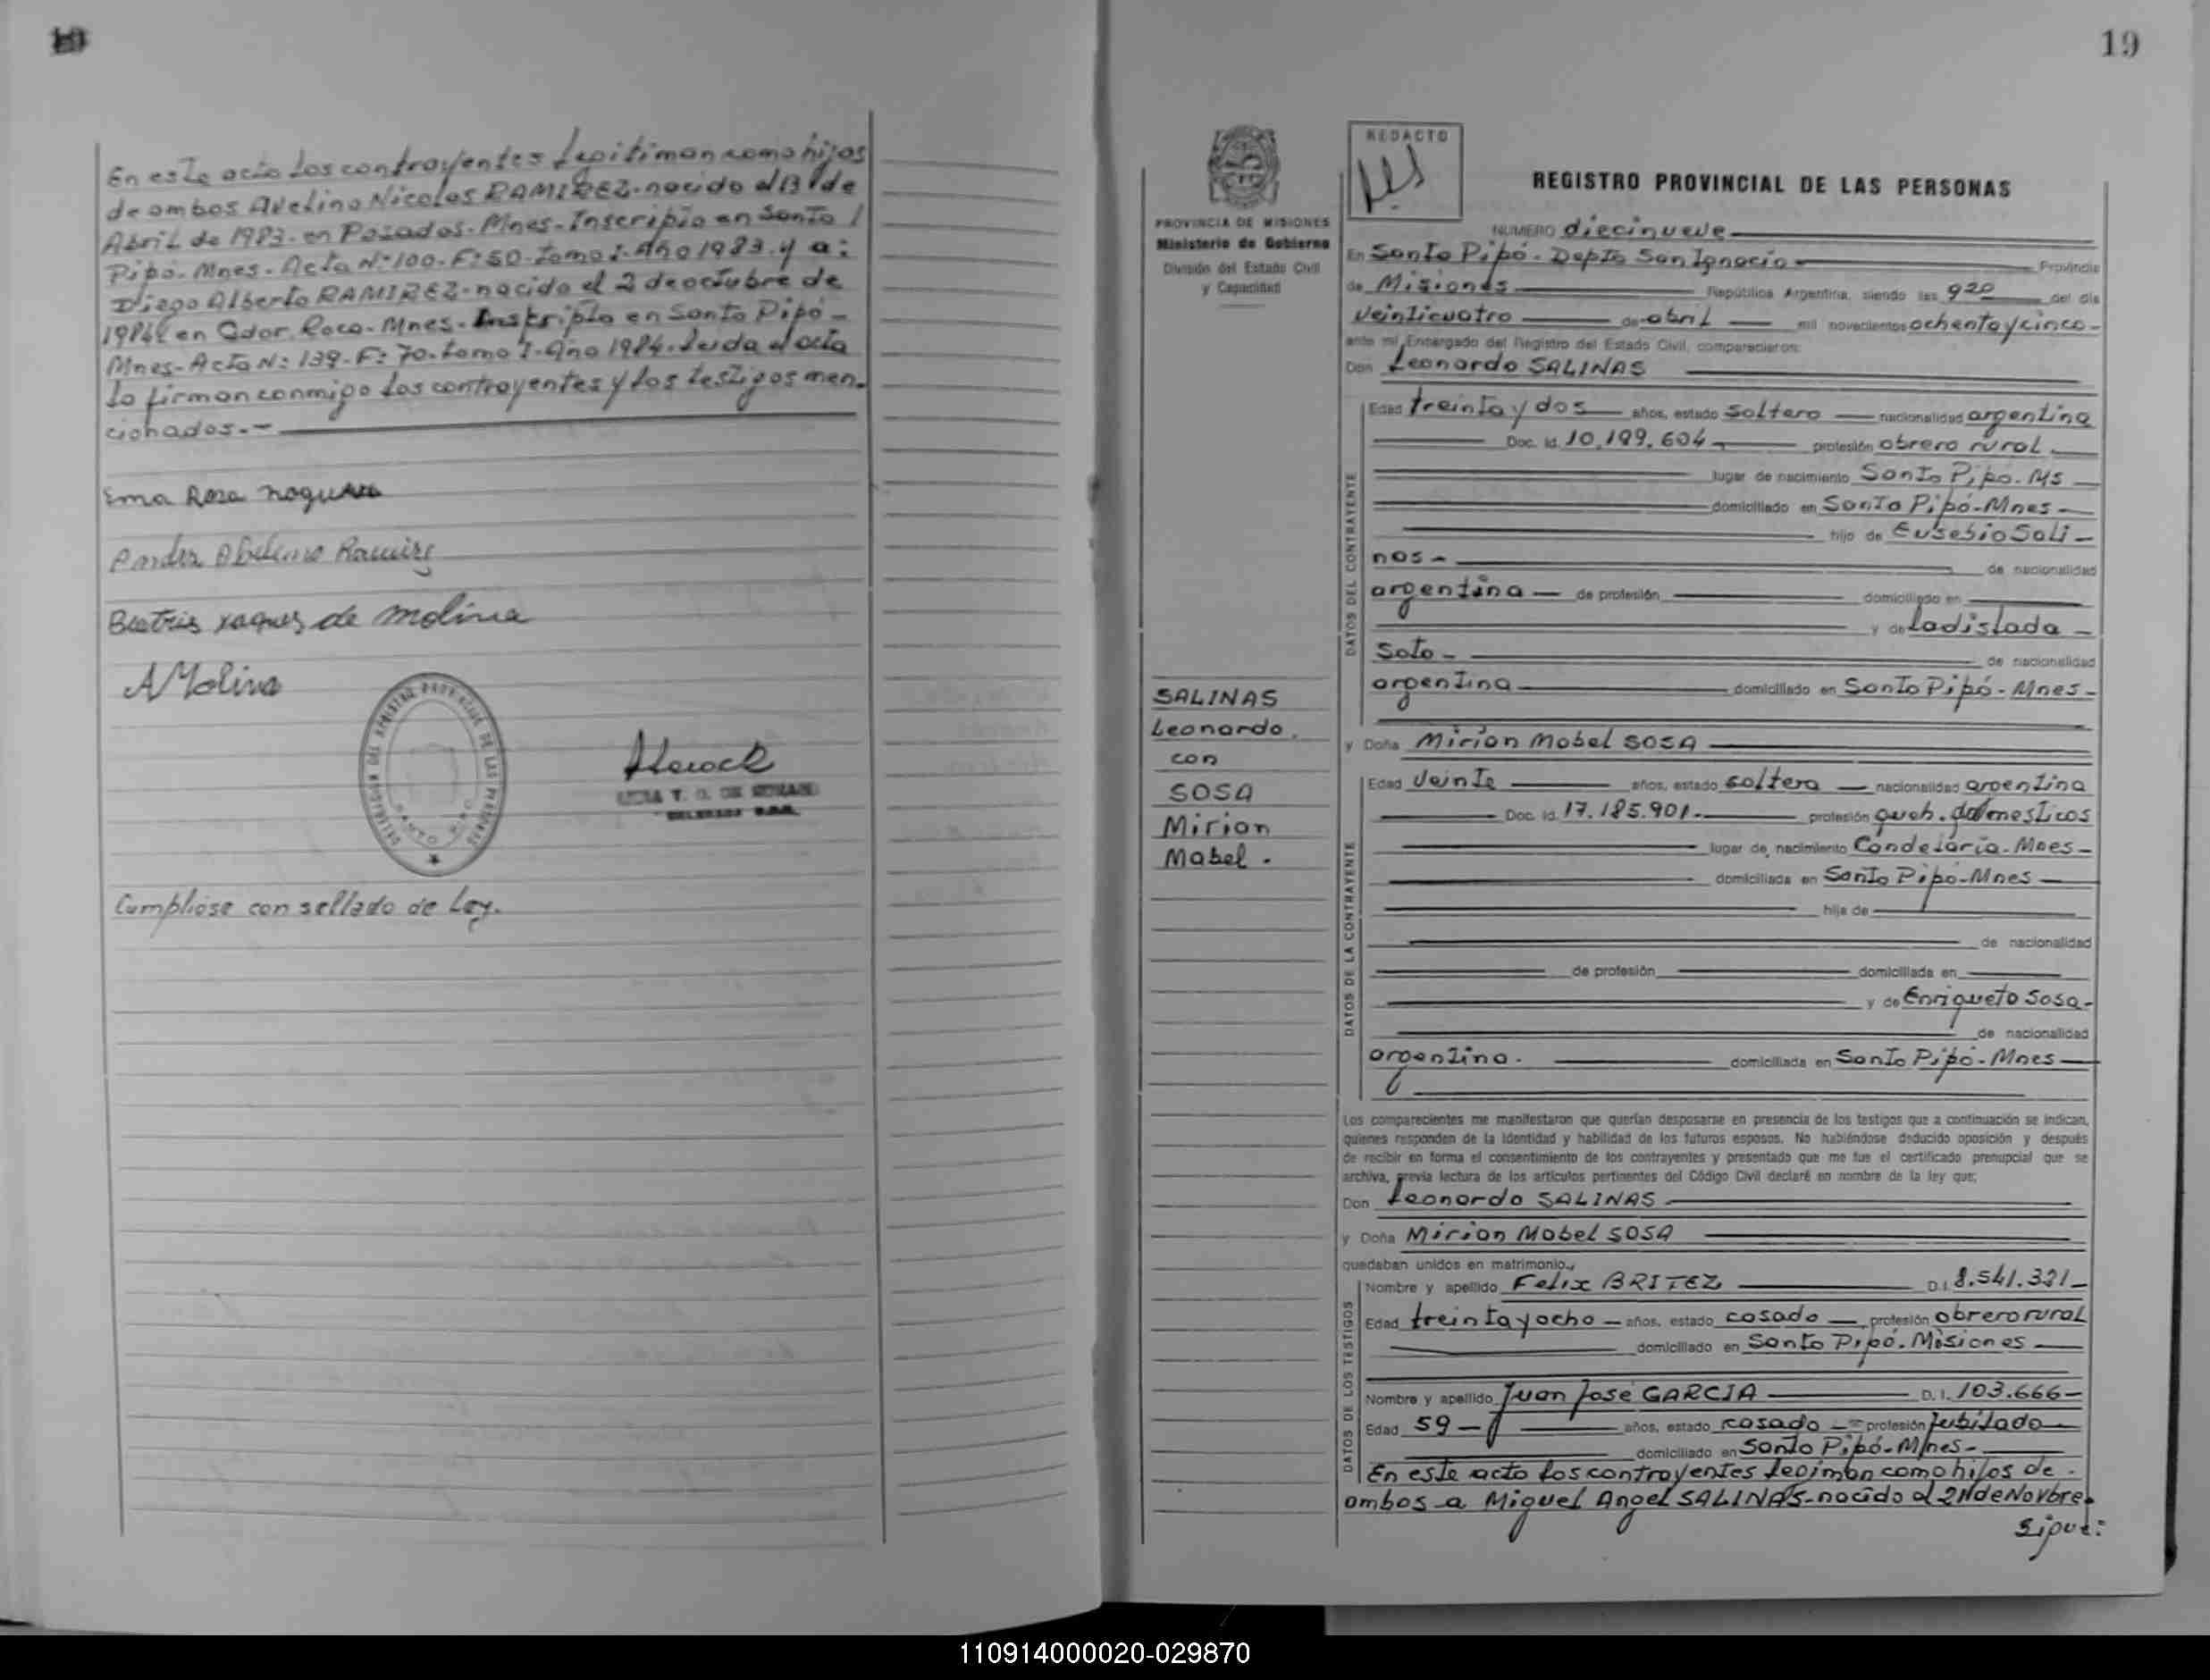 En este acto los contrayentes legitiman como hijos
de ambos Avelino Nicolas RAMIREZ-nacido el 13 de
Abril de 1983-en Posadas-Mnes-Inscripto en Santo
Pipó-Mnes-Acta Nº:100-Fº:50-tomo I-Año 1983.y a:
Diego Alberto RAMIREZ-nacido el 2 de octubre de
1984 en Gdor. Roca-Mnes-Inskripto en Santo Pipó-
Mnes-Acta Nº:139-Fº:70-tomo I-Año 1984.leida el acta
la firman conmigo los contrayentes y los testigos men-
cionados.-
Ema Rosa noguera
Ramirez
Beatris de Molina
A Molina
DELEGACION DEL REGISTRO PROVINCIAL DE LAS PERSONAS
SANTO PIPO
Cumpliose con sellado de Ley.
19
PROVINCIA DE MISIONES
Ministerio de Gobierno
División del Estado Civil
y Capacidad
SALINAS
Leonardo.
con
SOSA
Mirian
Mabel.
REDACTO
REGISTRO PROVINCIAL DE LAS PERSONAS
NUMERO diecinueve
En Santo Pipó-Depto San Ignacio Provincia
de Misiones República Argentina, siendo las 920 del día
veinticuatro de abril mil novecientos ochenta y cinco-
ante mí, Encargado del Registro del Estado Civil, comparecieron:
Don Leonardo SALINAS
DATOS DEL CONTRAYENTE
Edad treinta y dos años, estado soltero nacionalidad argentina
Doc. Id. 10.199.604 profesión obrero rural
lugar de nacimiento Santo Pipó-Ms
domiciliado en Santo Pipó-Mnes-
hijo de Eusebio Sali-
nas- de nacionalidad
argentina de profesión domiciliado en
y de Ladislada-
Soto- de nacionalidad
argentina domiciliado en Santo Pipó-Mnes-
y Doña Mirian Mabel SOSA
DATOS DE LA CONTRAYENTE
Edad veinte años, estado soltera nacionalidad argentina
Doc. Id. 17.185.901.- profesión queh. domesticos
lugar de nacimiento Candelaria-Mnes-
domiciliada en Santo Pipó-Mnes
hija de
de nacionalidad
de profesión domiciliada en
y de Enriqueta Sosa-
de nacionalidad
argentina. domiciliada en Santo Pipó-Mnes
Los comparecientes me manifestaron que querían desposarse en presencia de los testigos que a continuación se indican,
quienes responden de la identidad y habilidad de los futuros esposos. No habiéndose deducido oposición y después
de recibir en forma el consentimiento de los contrayentes y presentado que me fue el certificado prenupcial que se
archiva, previa lectura de los artículos pertinentes del Código Civil declaré en nombre de la ley que:
Don Leonardo SALINAS
y Doña Mirian Mabel SOSA
quedaban unidos en matrimonio.
DATOS DE LOS TESTIGOS
Nombre y apellido Felix BRITEZ D.I. 8.541.321-
Edad treinta y ocho años, estado casado profesión obrero rural
domiciliado en Santo Pipó.Misiones
Nombre y apellido Juan José GARCIA D.I. 103.666-
Edad 59- años, estado casado profesión Jubilado
domiciliado en Santo Pipó-Mnes-
En este acto los contrayentes legiman como hijos de
ambos a Miguel Angel SALINAS-nacido el 21 de Novbre
sigue:
110914000020-029870